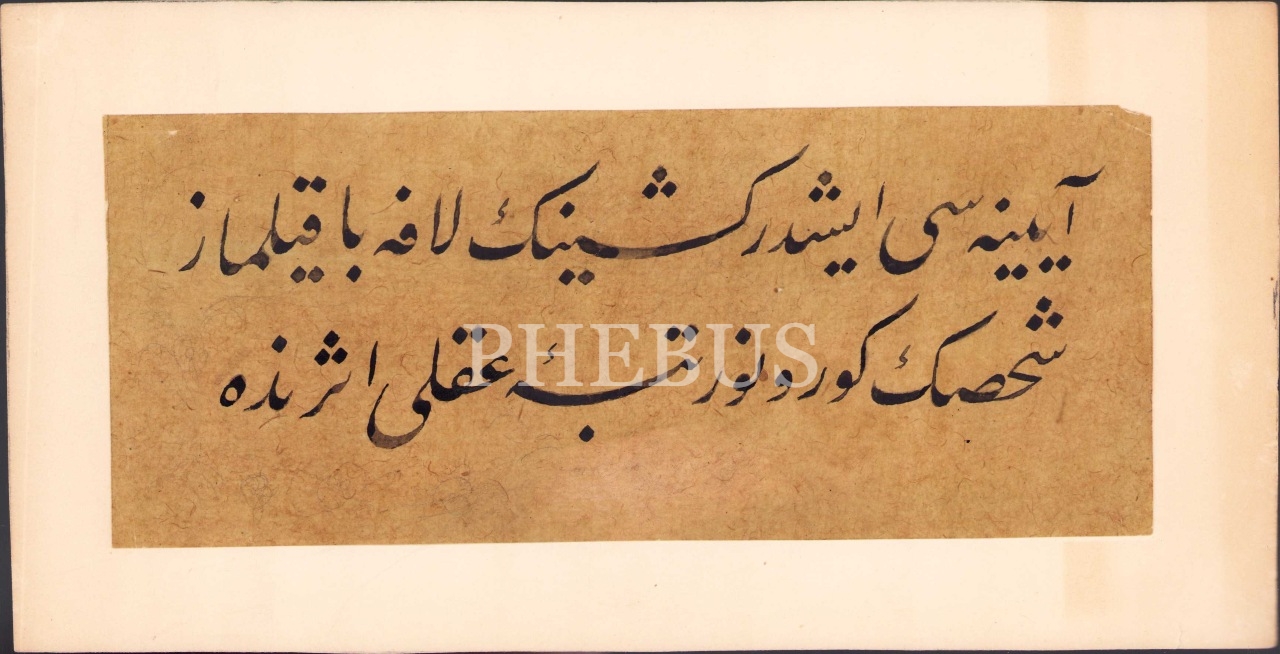 آیینه سی ایشدر کشینك لافه باقیلماز
شخصك كورونور رتبۀ عقلی اثرنده
PHEBUS